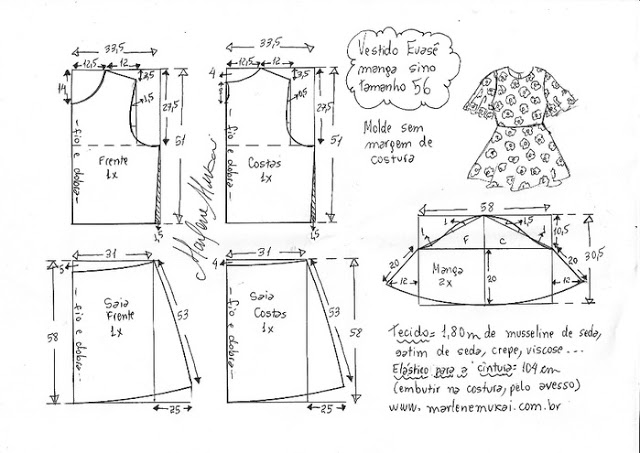 Vestido Evasê
manga sino
tamanho 56
Molde sem
margem de
costura
33,5
12,5
12
3,5
14
1,5
27,5
51
- fio e dobra -
Frente
1x
1,5
33,5
12,5
12
4
3,5
0,5
27,5
51
- fio e dobra -
Costas
1x
1,5
Marlene Mukai
31
5
58
53
- fio e dobra -
Saia
Frente
1x
25
31
4
53
58
- fio e dobra -
Saia
Costas
1x
25
58
1
1,5
1
1
F
C
10,5
30,5
20
20
20
12
12
Manga
2x
Tecido= 1,80m de musseline de seda,
cetim de seda, crepe, viscose...
Elástico para a cintura= 104 cm
(embutir na costura, pelo avesso)
www.marlenemukai.com.br